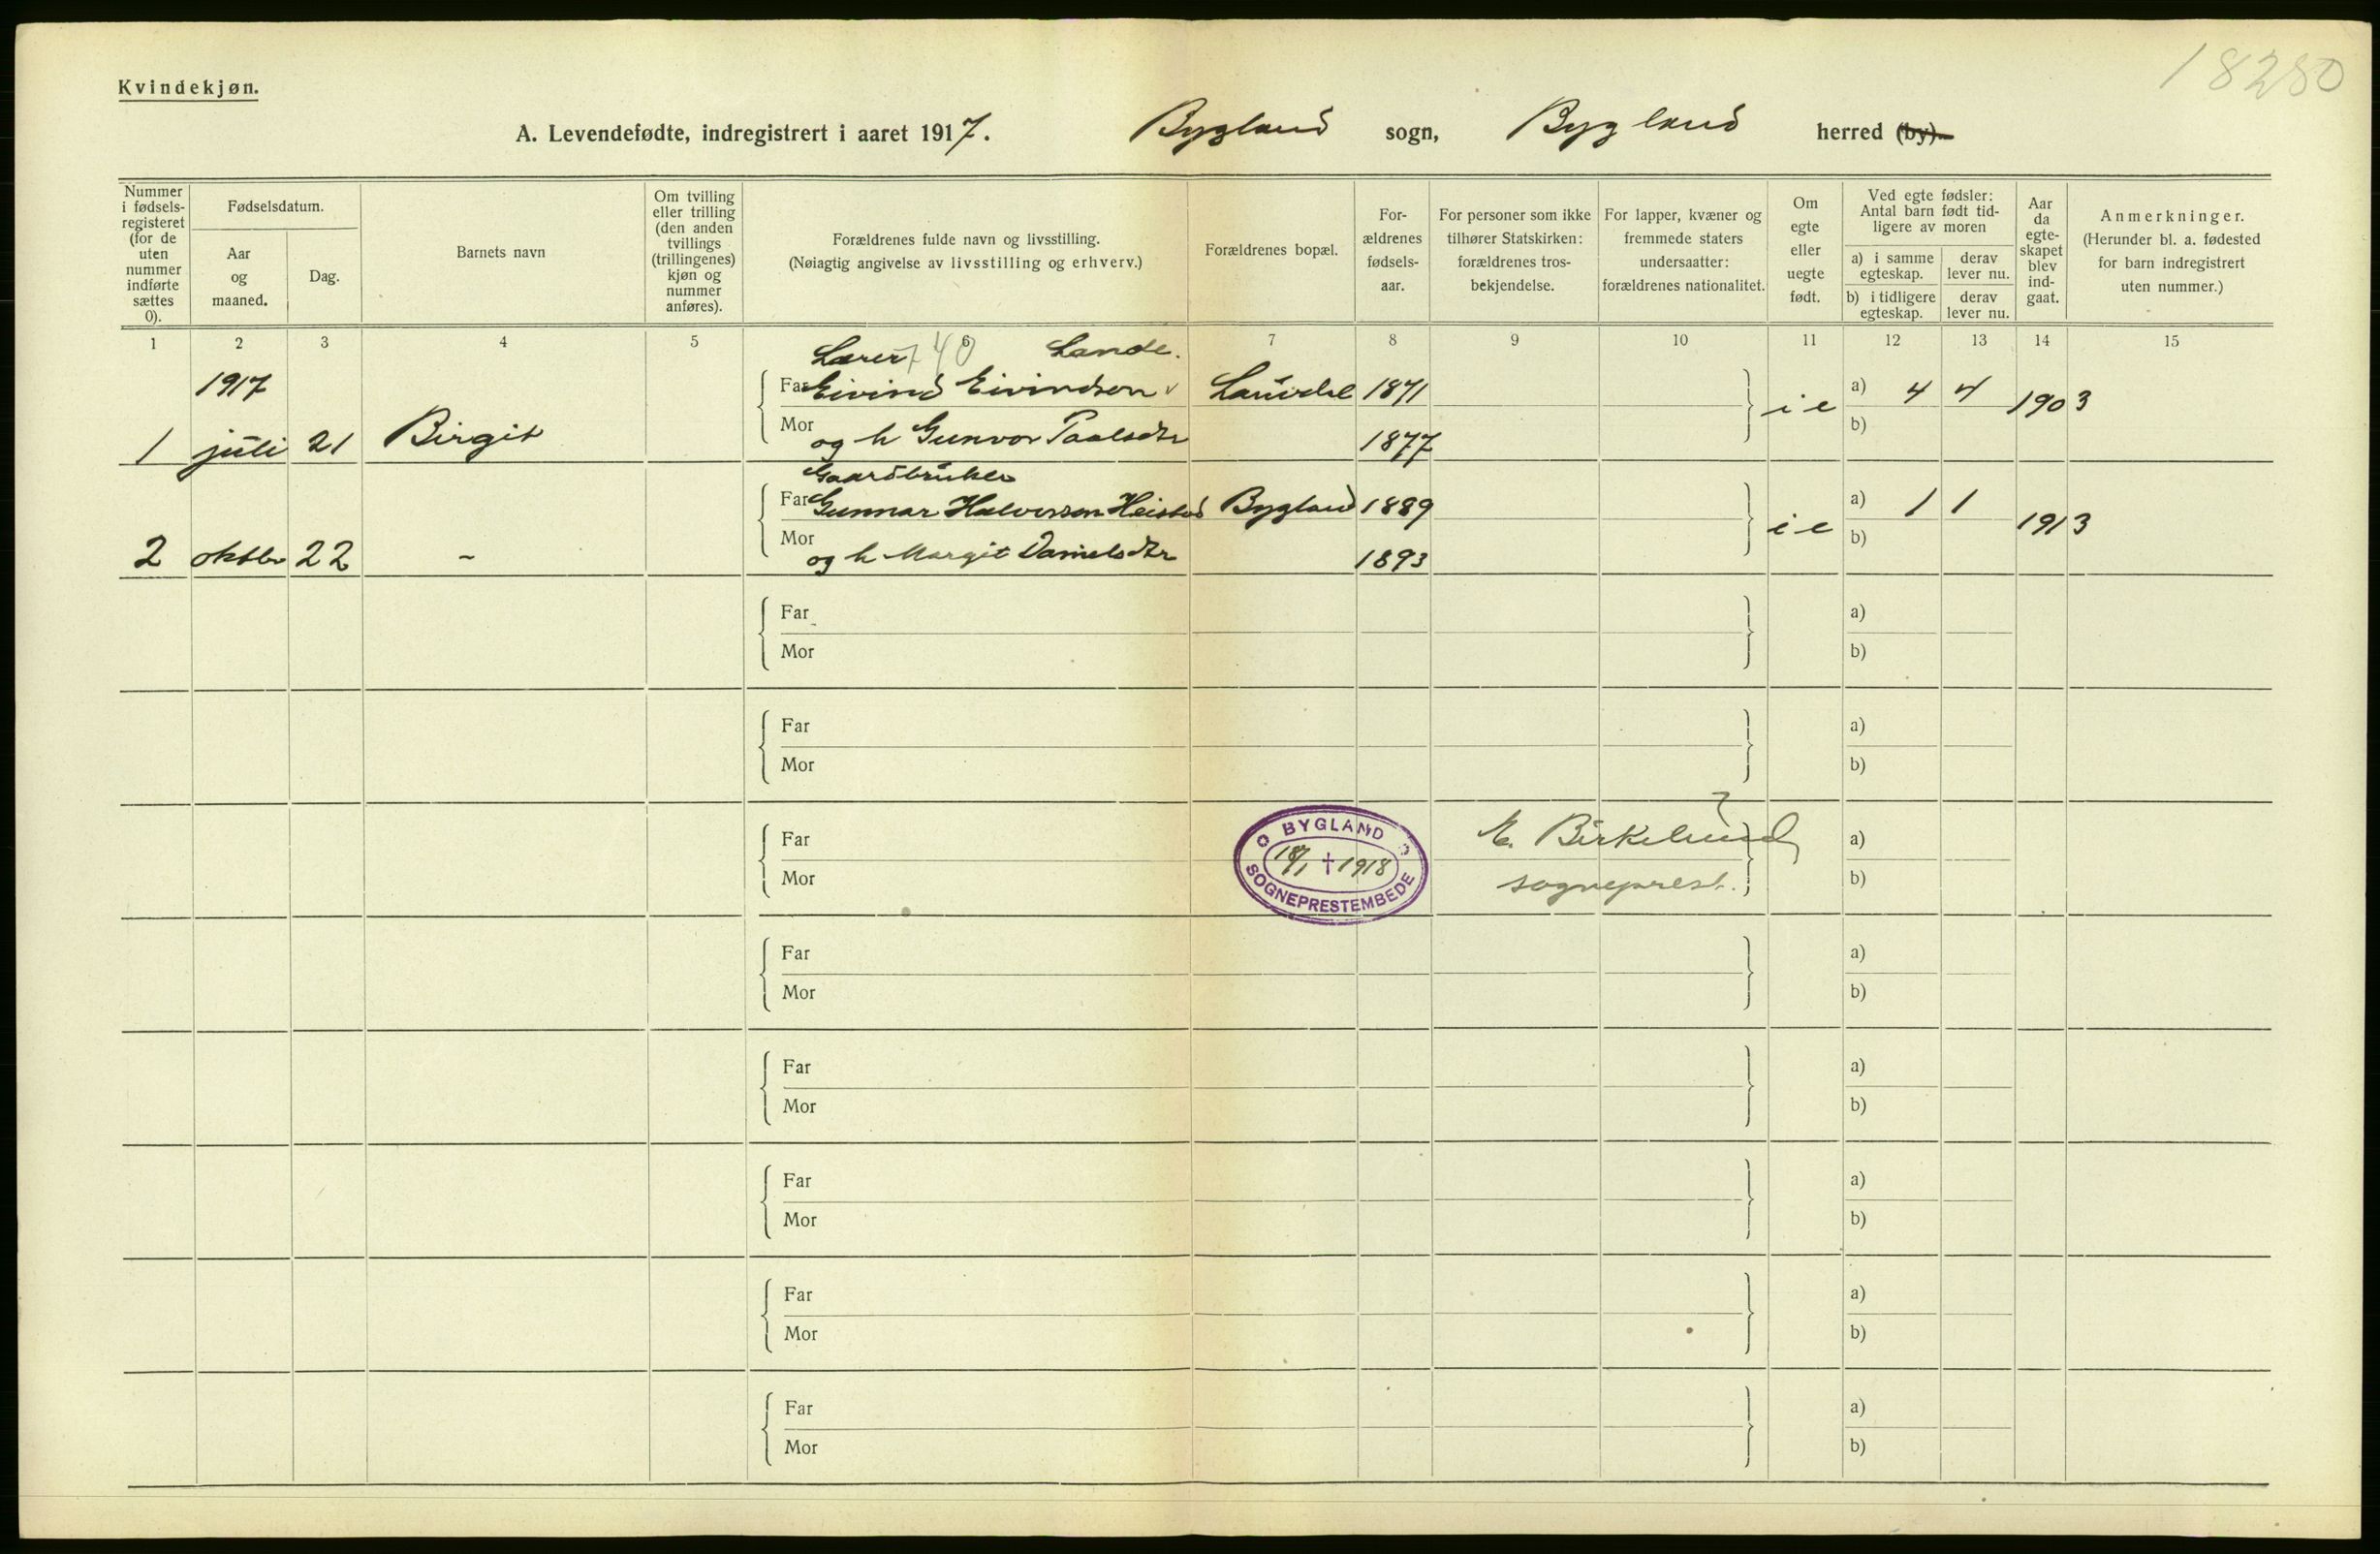 18280
Kvindekjøn.
A. Levendefødte, indregistrert i aaret 1917. Bygland sogn, Bygland herred (by).
Nummer i fødsels-registeret (for de uten nummer indførte sættes 0).
Fødselsdatum.
Aar og maaned.
Dag.
Barnets navn
Om tvilling eller trilling (den anden tvillings (trillingenes) kjøn og nummer anføres).
Forældrenes fulde navn og livsstilling.
(Nøiagtig angivelse av livsstilling og erhverv.)
Forældrenes bopæl.
For-ældrenes fødsels-aar.
For personer som ikke tilhører Statskirken: forældrenes tros-bekjendelse.
For lapper, kvæner og fremmede staters undersaatter: forældrenes nationalitet.
Om egte eller uegte født.
Ved egte fødsler: Antal barn født tid-ligere av moren
a) i samme egteskap.
derav lever nu.
b) i tidligere egteskap.
derav lever nu.
Aar da egte-skapet blev ind-gaat.
Anmerkninger.
(Herunder bl. a. fødested for barn indregistrert uten nummer.)
1 2 3 4 5 6 7 8 9 10 11 12 13 14 15
Lærer 40 Lande.
1917 Far Eivind Eivindson 1871 a) 4 4
1 juli 21 Birgit Mor og h Gunvor Paalsdtr 1877 i e b) 1903
Gaardbruker
Far Gunnar Halvorson Heistad Bygland 1889 a) 1 1
2 oktbr 22 - Mor og h Margit Danielsdtr 1893 i e b) 1913
Far a)
Mor b)
Far a)
Mor b)
Far BYGLAND E. Birkelund a)
Mor 18/1 † 1918 sogneprest. b)
SOGNEPRESTEMBEDE
Far a)
Mor b)
Far a)
Mor b)
Far a)
Mor b)
Far a)
Mor b)
Far a)
Mor b)